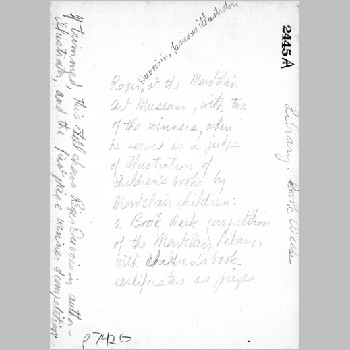 Duvoisin, famous illustrator
Roger, at the Montclair
Art Museum, with two
of the winners, when
he served as a judge
of illustration of
children's books by
Montclair children:
a Book Week competition
of the Montclair Library,
with children's book
certificates as prizes
If trimmed, this still shows Roger Duvoisin author-
illustrator, and the first prize winner of competition
2445A
Library. Book Week